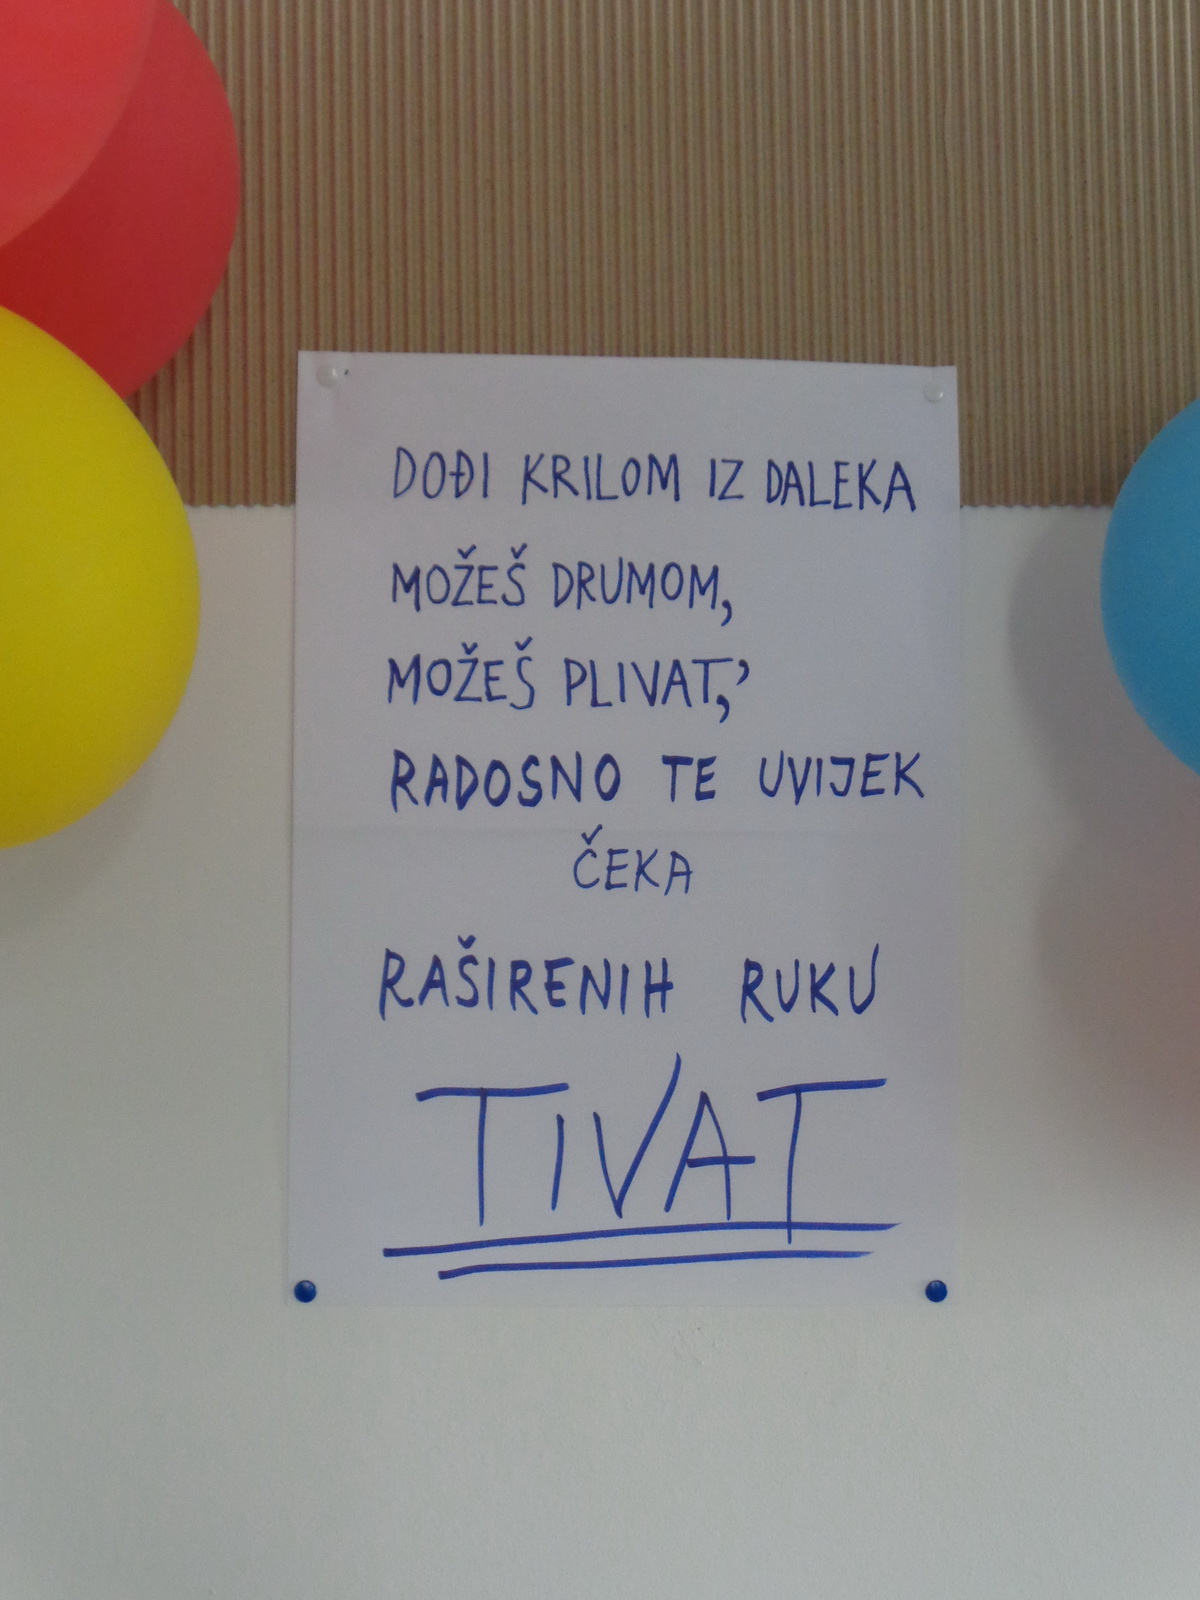 DOĐI KRILOM IZ DALEKA
MOŽEŠ DRUMOM,
MOŽEŠ PLIVAT,'
RADOSNO TE UVIJEK
ČEKA
RAŠIRENIH RUKU
TIVAT